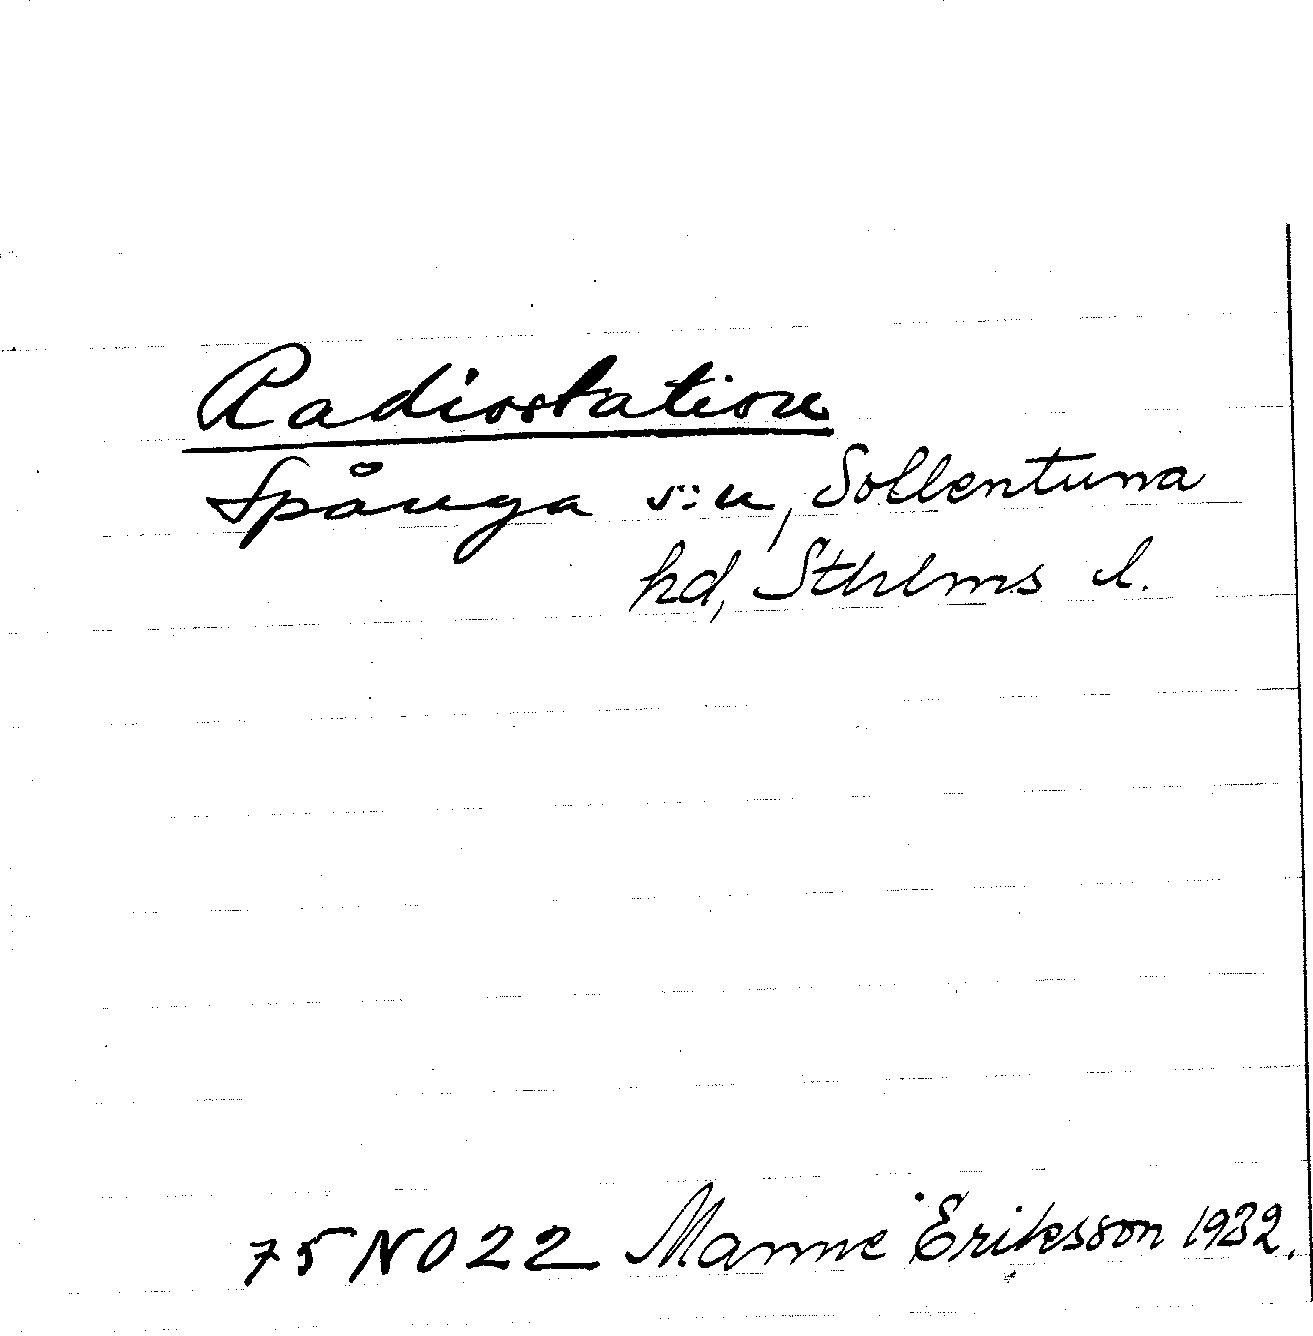 Radiostation
Spånga s:n, Sollentuna
hd, Sthlms l.
75 NO 22 Manne Eriksson 1932.